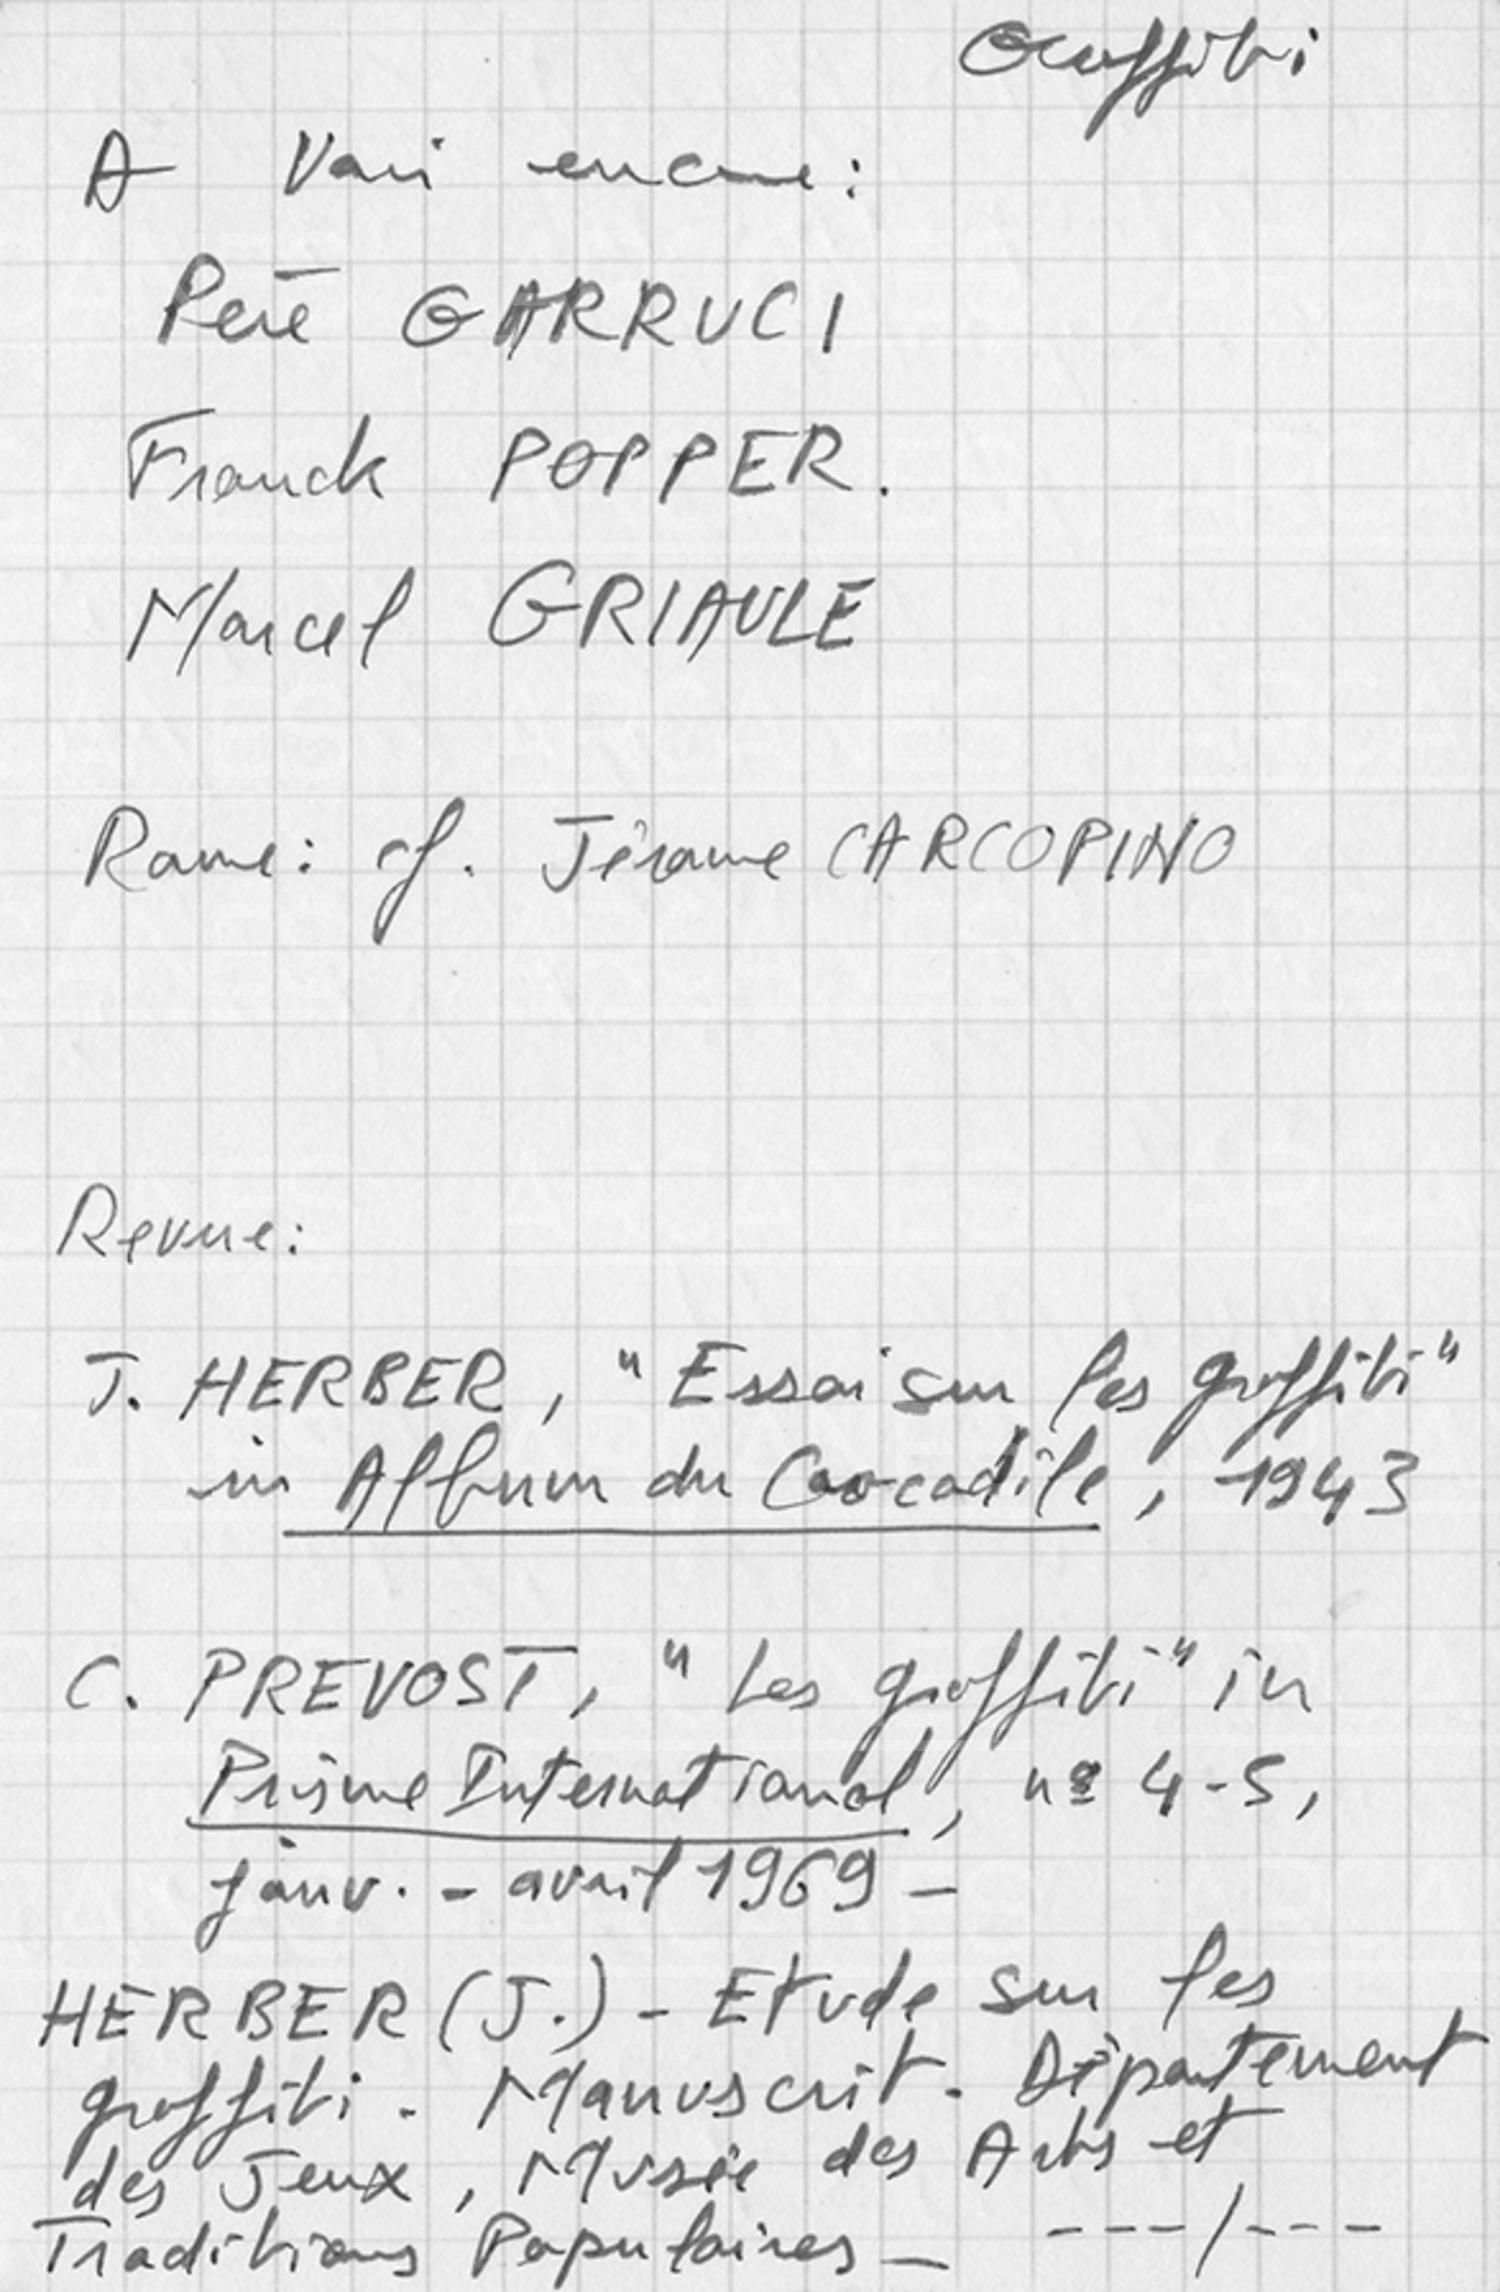 Graffiti
A Voir encore :
Père GARRUCI
Franck POPPER.
Marcel GRIAULE
Rome : cf. Jérome CARCOPINO
Revue :
J. HERBER, "Essai sur les graffiti"
in Album du Crocodile, 1943
C. PREVOST, "Les graffiti" in
Prisme International, nº 4-5,
janv. - avril 1969 -
HERBER (J.) - Etude sur les
graffiti. Manuscrit. Département
des Jeux, Musée des Arts et
Traditions Populaires - ---/---